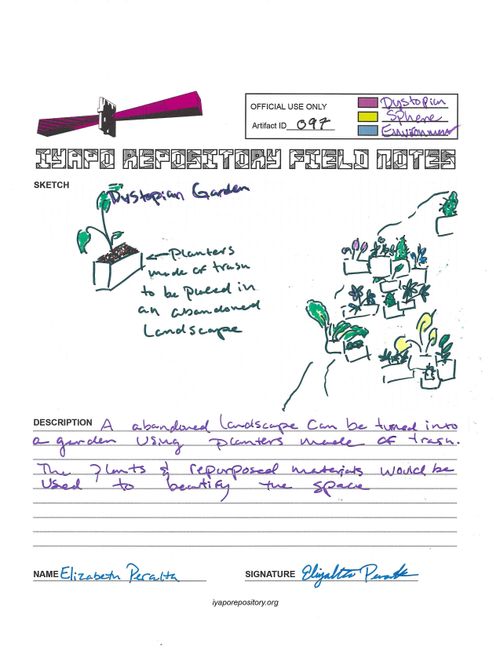 OFFICIAL USE ONLY
Artifact ID 097
Dystopian
Sphere
Environment
IYAPO REPOSITORY FIELD NOTES
SKETCH
Dystopian Garden
Planters
made of trash
to be placed in
an abandoned
landscape
DESCRIPTION A abandoned landscape can be turned into
a garden using planters made of trash.
The plants & repurposed materials would be
used to beautify the space
NAME Elizabeth Peralta
SIGNATURE Elizabeth Peralta
iyaporepository.org